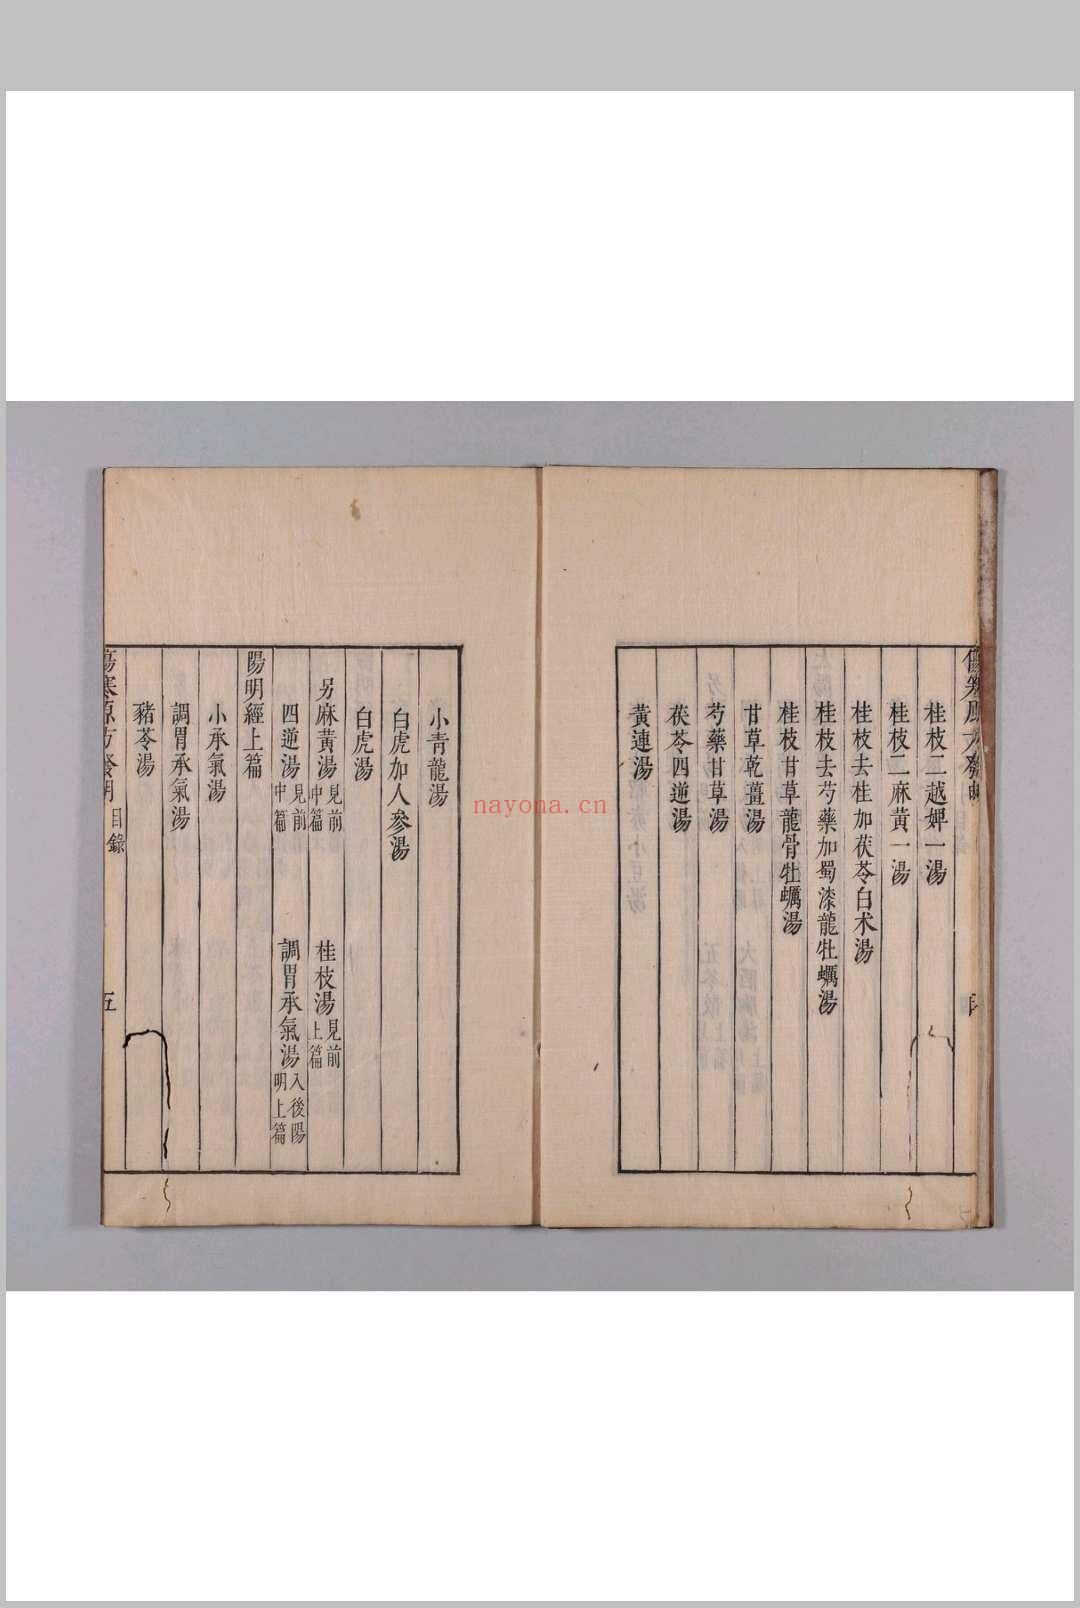 桂枝二越婢一湯
桂枝二麻黃一湯
桂枝去桂加茯苓白术湯
桂枝去芍藥加蜀漆龍牡蠣湯
桂枝甘草龍骨牡蠣湯
甘草乾薑湯
芍藥甘草湯
茯苓四逆湯
黃連湯
小青龍湯
白虎加人參湯
白虎湯
另麻黃湯見前中篇 桂枝湯見前上篇
四逆湯見前中篇 調胃承氣湯入後陽明上篇
陽明經上篇
小承氣湯
調胃承氣湯
豬苓湯
傷寒原方發明 目錄 五
nayona.cn